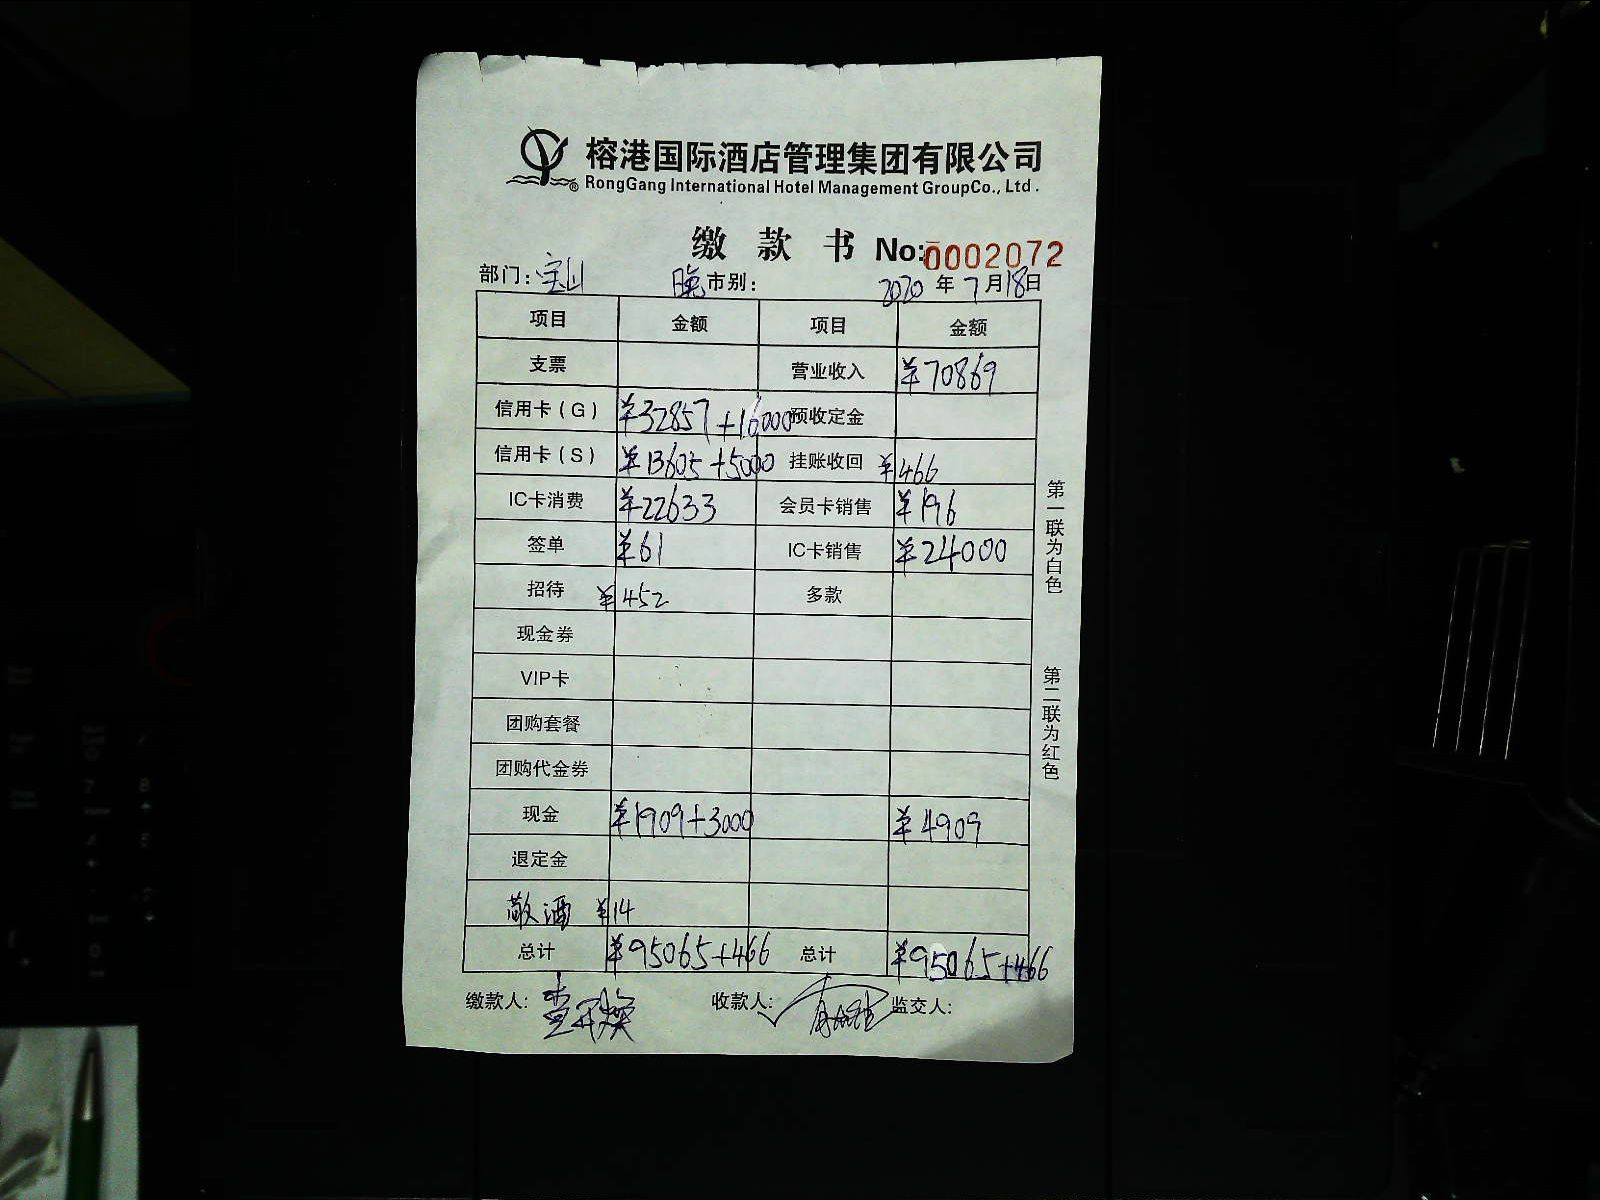 榕港国际酒店管理集团有限公司
RongGang International Hotel Management GroupCo., Ltd.
缴款书 No:0002072
部门:宝山 晚市别: 2020年7月18日
项目 金额 项目 金额
支票 营业收入 ¥70869
信用卡(G) ¥32857+16000 预收定金
信用卡(S) ¥13605+5000 挂账收回 ¥466
IC卡消费 ¥22633 会员卡销售 ¥196
签单 ¥61 IC卡销售 ¥24000
招待 ¥452 多款
现金券
VIP卡
团购套餐
团购代金券
现金 ¥1909+3000 ¥4909
退定金
敬酒 ¥14
总计 ¥95065+466 总计 ¥95065+466
缴款人: 收款人: 监交人:
第一联为白色
第二联为红色